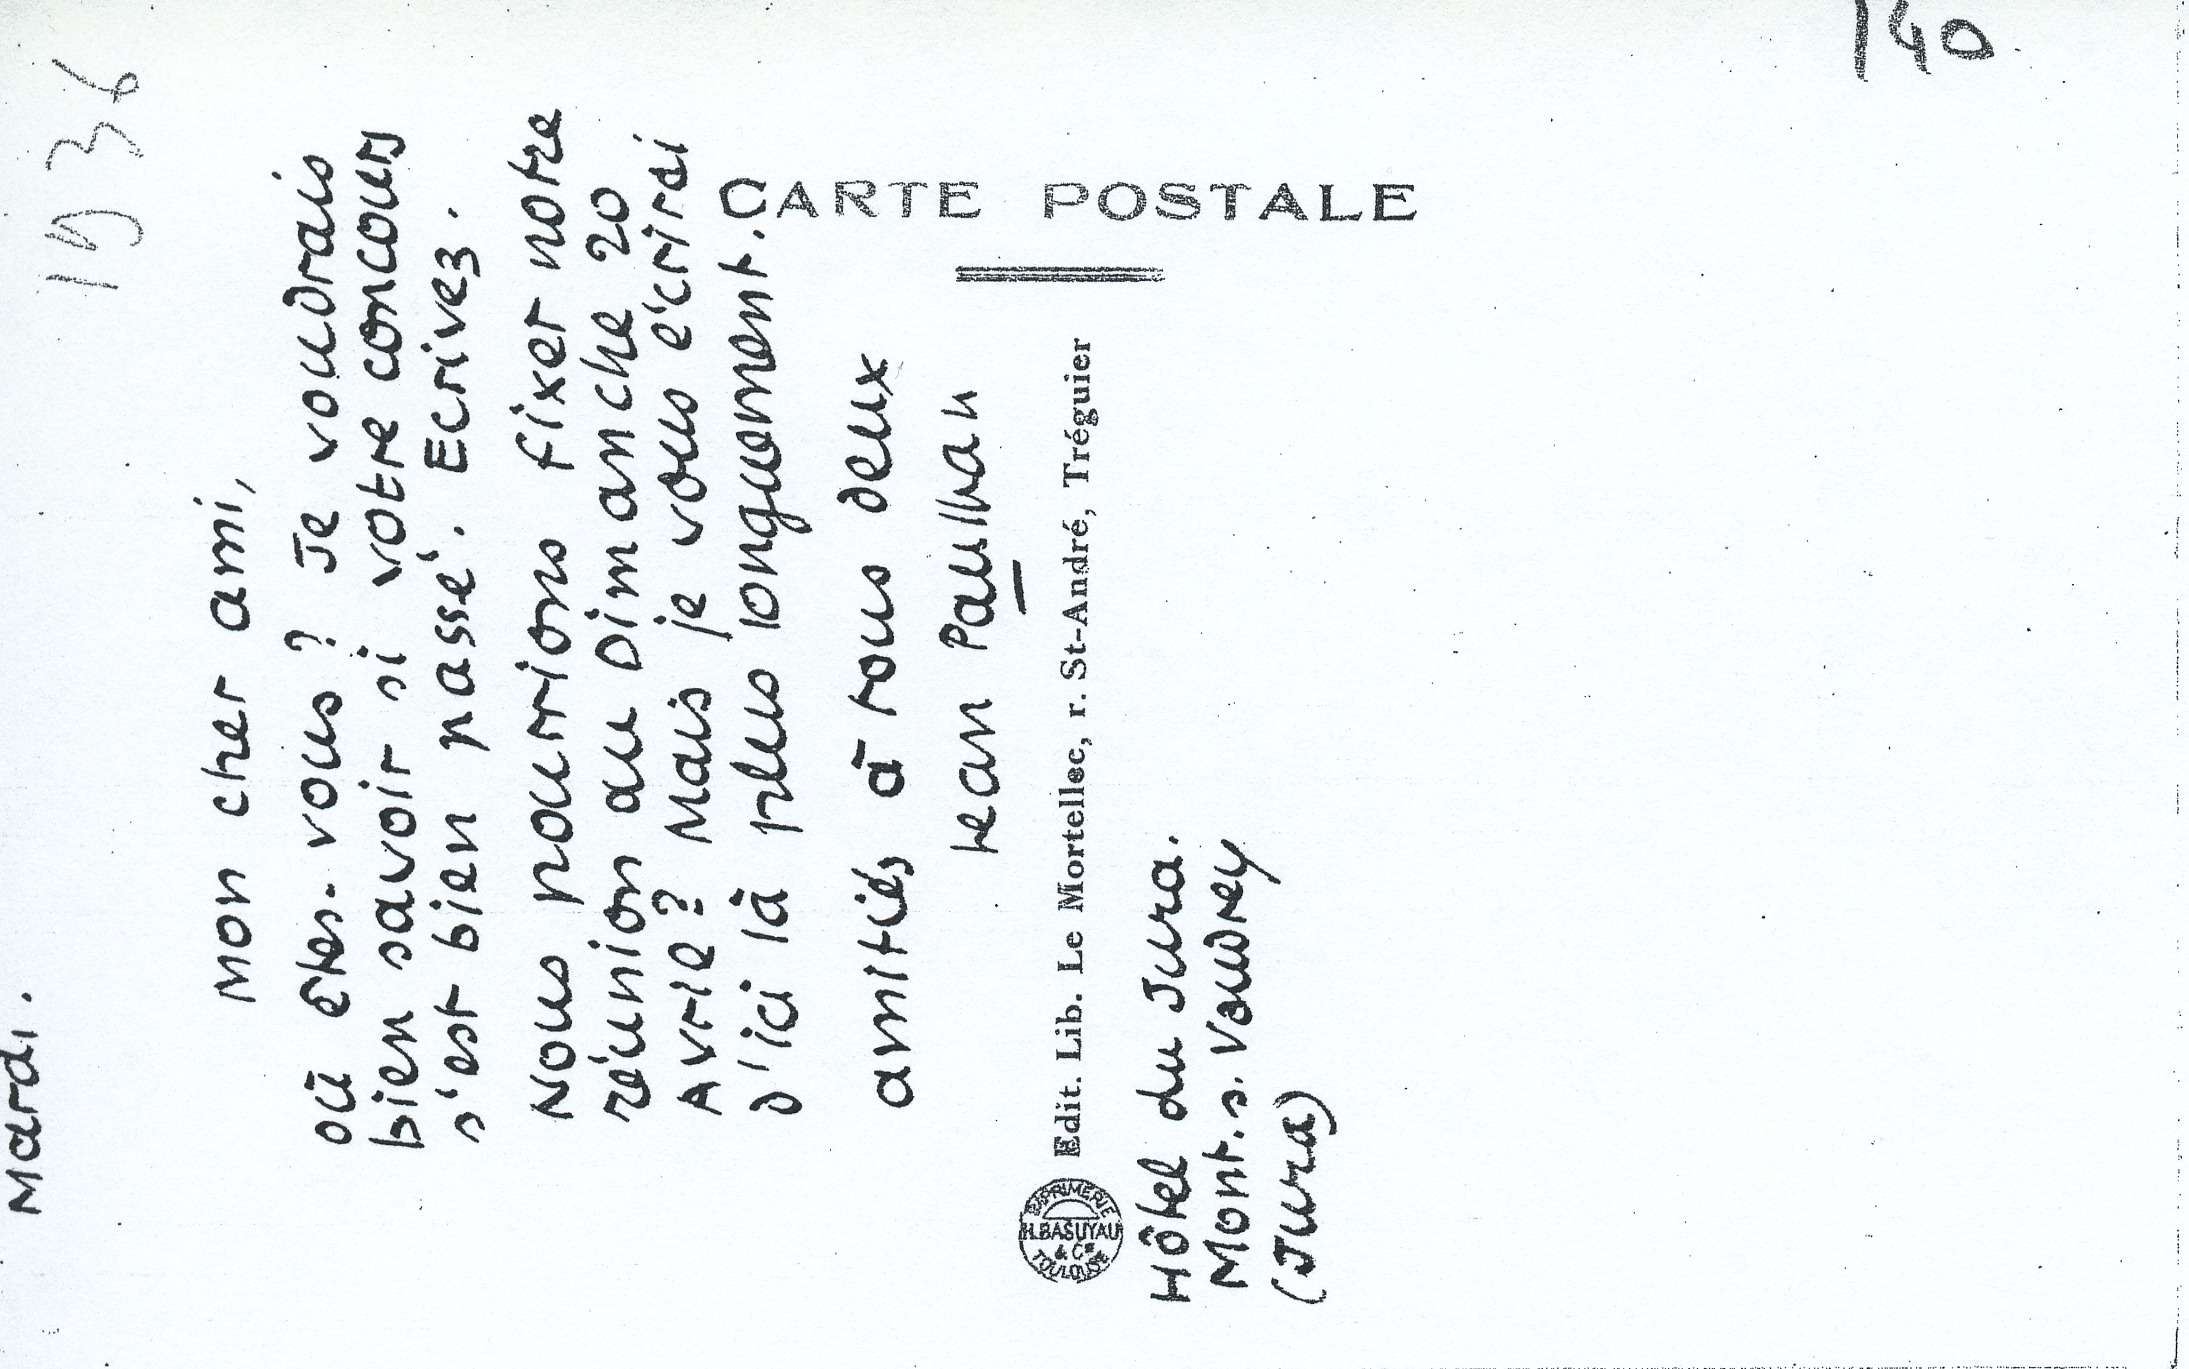 140
1936
Mardi.
Mon cher ami,
où êtes-vous ? Je voudrais
bien savoir si votre concours
s'est bien passé. Ecrivez.
Nous pourrions fixer notre
réunion au Dimanche 20
Avril ? Mais je vous écrirai
d'ici là plus longuement.
amitiés à tous deux
Jean Paulhan
CARTE POSTALE
Edit. Lib. Le Mortellec, r. St-André, Tréguier
IMPRIMERIE
H. BASUYAU
& Cie
TOULOUSE
Hôtel du Jura.
Mont. s. Vaudrey
(Jura)